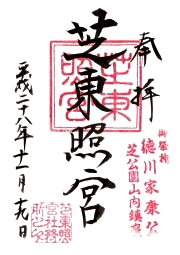 奉拝
御祭神
徳川家康公
芝公園山内鎮座
芝東照宮
芝東照宮
平成二十八年十一月十九日
芝東照宮社務所之印